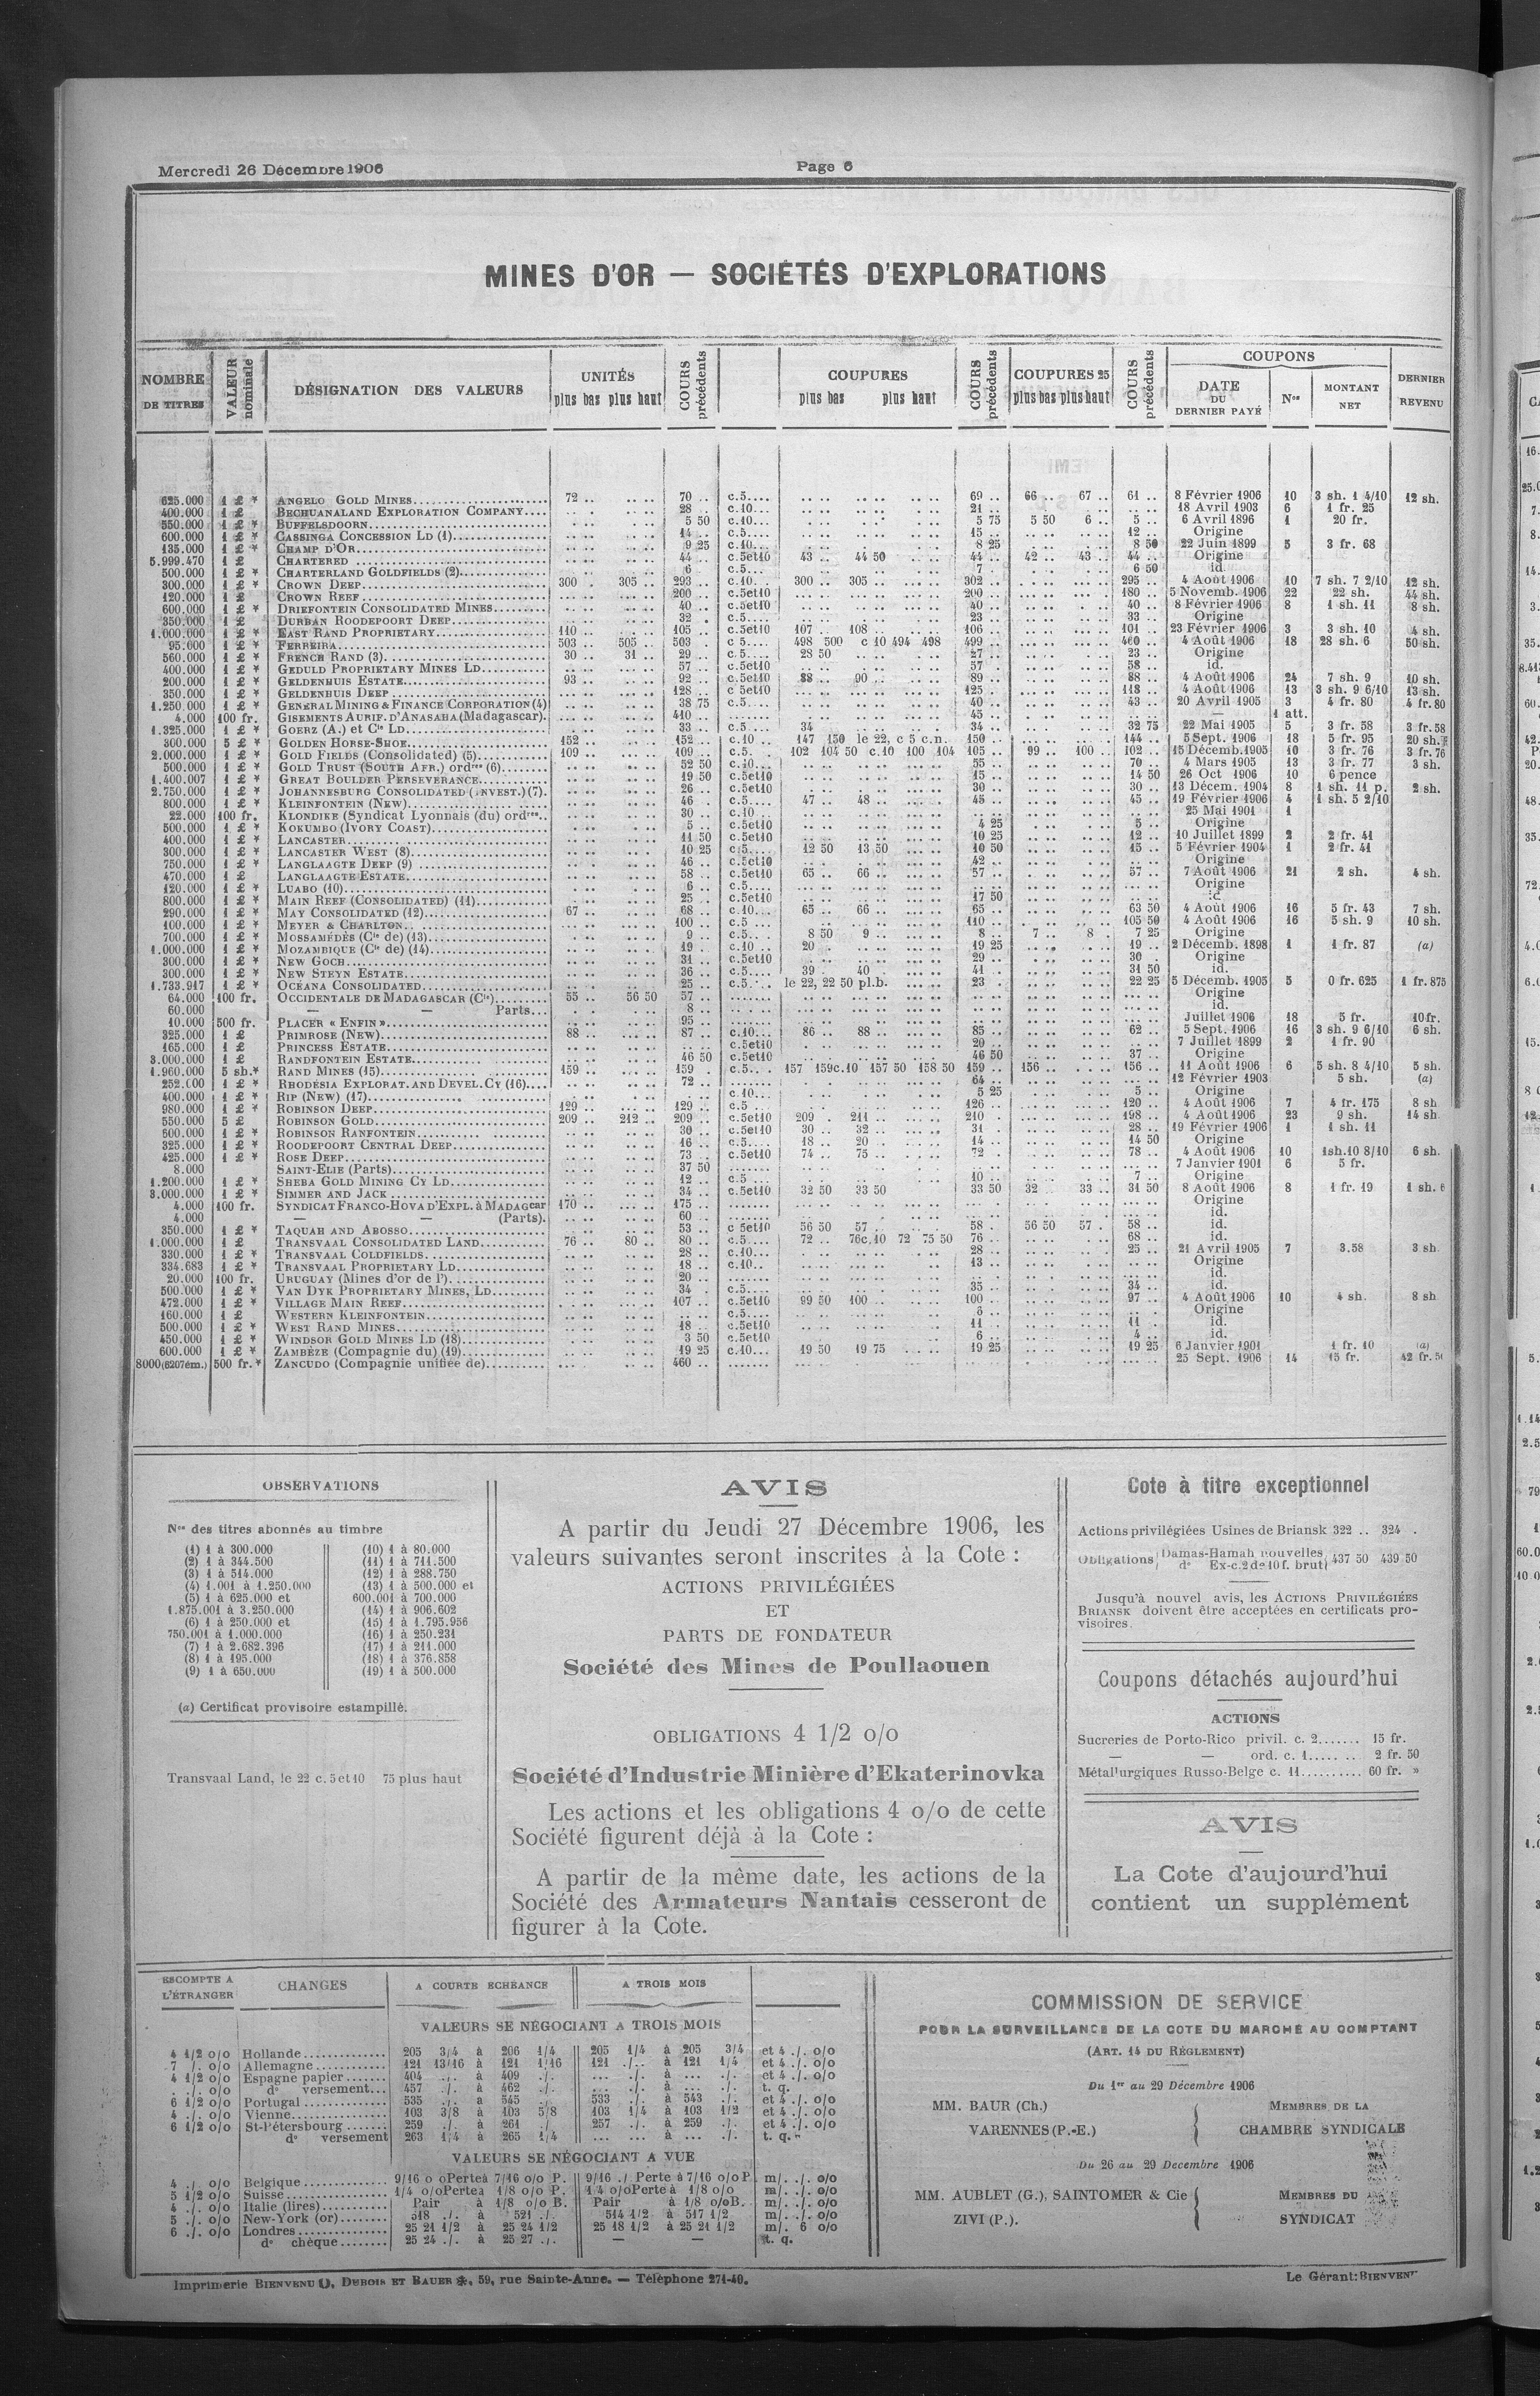 Mercredi 26 Décembre 1906
Page 6
MINES D'OR — SOCIÉTÉS D'EXPLORATIONS
NOMBRE DE TITRES | VALEUR nominale | DÉSIGNATION DES VALEURS | UNITÉS plus bas plus haut | COURS précédents | COUPURES plus bas plus haut | COURS précédents | COUPURES 25 plus bas plus haut | COURS précédents | COUPONS DATE DU DERNIER PAYÉ | Nos | MONTANT NET | DERNIER REVENU
625.000 1 £ * ANGELO GOLD MINES 72 .. 70 .. c.5.... 69 .. 66 .. 67 .. 61 .. 8 Février 1906 10 3 sh. 1 4/10 12 sh.
400.000 1 £ BECHUANALAND EXPLORATION COMPANY 28 .. c.10... 21 .. 18 Avril 1903 6 1 fr. 25
550.000 1 £ * BUFFELSDOORN 5 50 c.10... 5 75 5 50 6 .. 5 .. 6 Avril 1896 1 20 fr.
600.000 1 £ * CASSINGA CONCESSION LD (1) 14 .. c.5.... 15 .. 12 .. Origine
135.000 1 £ * CHAMP D'OR 9 25 c.10... 8 25 8 50 22 Juin 1899 5 3 fr. 68
5.999.470 1 £ CHARTERED 44 .. c.5et10 43 .. 44 50 44 .. 42 .. 43 .. 44 .. Origine
500.000 1 £ * CHARTERLAND GOLDFIELDS (2) 6 c.5... 7 6 50 id.
300.000 1 £ * CROWN DEEP 300 . 305 .. 293 .. c.10.. 300 .. 305 .. 302 .. 295 .. 4 Août 1906 10 7 sh. 7 2/10 12 sh.
120.000 1 £ CROWN REEF 200 .. c.5et10 200 .. 180 .. 5 Novemb. 1906 22 22 sh. 44 sh.
600.000 1 £ * DRIEFONTEIN CONSOLIDATED MINES 40 .. c.5et10 40 .. 40 .. 8 Février 1906 8 1 sh. 11 8 sh.
350.000 1 £ DURBAN ROODEPOORT DEEP 32 . c.5.... 23 .. 33 .. Origine
1.000.000 1 £ * EAST RAND PROPRIETARY 110 .. 105 .. c.5et10 107 .. 108 .. 106 .. 101 .. 23 Février 1906 3 3 sh. 10 4 sh.
95.000 1 £ * FERREIRA 503 .. 505 .. 503 . c 5.... 498 500 c 10 494 498 499 .. 460 .. 4 Août 1906 18 28 sh. 6 50 sh.
560.000 1 £ * FRENCH RAND (3) 30 .. 31 .. 29 .. c.5.... 28 50 27 .. 23 .. Origine
400.000 1 £ * GEDULD PROPRIETARY MINES LD 57 .. c.5et10 57 .. 58 .. id.
200.000 1 £ * GELDENHUIS ESTATE 93 .. 92 .. c.5et10 88 .. 90 .. 89 .. 88 .. 4 Août 1906 24 7 sh. 9 10 sh.
350.000 1 £ * GELDENHUIS DEEP 128 .. c 5et10 125 .. 118 .. 4 Août 1906 13 3 sh. 9 6/10 13 sh.
1.250.000 1 £ * GENERAL MINING & FINANCE CORPORATION (4) 38 75 c.5.... 40 .. 43 .. 20 Avril 1905 3 4 fr. 80 4 fr. 80
4.000 100 fr. GISEMENTS AURIF. D'ANASAHA (Madagascar). 410 .. 45 .. — 1 att.
1.325.000 1 £ * GOERZ (A.) et Cie LD 33 .. c.5.... 34 34 .. 32 75 22 Mai 1905 5 3 fr. 58 3 fr. 58
300.000 5 £ * GOLDEN HORSE-SHOE 152 .. 152 .. c.10 .. 147 150 le 22, c 5 c.n. 150 .. 144 .. 5 Sept. 1906 18 5 fr. 95 20 sh.
2.000.000 1 £ * GOLD FIELDS (Consolidated) (5) 109 .. 109 .. c.5. . 102 104 50 c.10 100 104 105 .. 99 .. 100 .. 102 .. 15 Décemb.1905 10 3 fr. 76 3 fr. 76
500.000 1 £ * GOLD TRUST (SOUTH AFR.) ordres (6) 52 50 c.10... 55 .. 70 .. 4 Mars 1905 13 3 fr. 77 3 sh.
1.400.007 1 £ * GREAT BOULDER PERSEVERANCE 19 50 c.5et10 15 .. 14 50 26 Oct 1906 10 6 pence
2.750.000 1 £ * JOHANNESBURG CONSOLIDATED (INVEST.) (7). 26 .. c.5et10 30 .. 30 .. 13 Décem. 1904 8 1 sh. 11 p. 2 sh.
800.000 1 £ * KLEINFONTEIN (NEW) 46 . c.5.... 47 .. 48 .. 45 .. 45 .. 19 Février 1906 4 1 sh. 5 2/10
22.000 100 fr. KLONDIKE (Syndicat Lyonnais (du) ordres.. 30 .. c.10... 25 Mai 1901 1
500.000 1 £ * KOKUMBO (IVORY COAST) 5 .. c.5et10 4 25 5 .. Origine
400.000 1 £ * LANCASTER 11 50 c.5et10 10 25 12 .. 10 Juillet 1899 2 2 fr. 41
300.000 1 £ * LANCASTER WEST (8) 10 25 c.5.... 12 50 13 50 10 50 15 .. 5 Février 1904 1 2 fr. 41
750.000 1 £ * LANGLAAGTE DEEP (9) 46 .. c.5et10 42 .. Origine
470.000 1 £ LANGLAAGTE ESTATE 58 .. c.5et10 65 .. 66 .. 57 .. 57 .. 7 Août 1906 21 2 sh. 4 sh.
120.000 1 £ * LUABO (10) 6 .. c.5.... Origine
800.000 1 £ * MAIN REEF (CONSOLIDATED) (11) 25 .. c.5et10 17 50
290.000 1 £ * MAY CONSOLIDATED (12) 67 .. 68 .. c.10... 65 .. 66 .. 65 .. 63 50 4 Août 1906 16 5 fr. 43 7 sh.
100.000 1 £ * MEYER & CHARLTON 100 .. c.5 ... 110 .. 105 50 4 Août 1906 16 5 sh. 9 10 sh.
700.000 1 £ * MOSSAMÉDÈS (Cie de) (13) 9 .. c.5.. . 8 50 9 .. 8 .. 7 .. 8 . 7 25 Origine
1.000.000 1 £ * MOZAMBIQUE (Cie de) (14) 19 .. c.10 .. 20 . 19 25 19 .. 2 Décemb. 1898 1 1 fr. 87 (a)
300.000 1 £ * NEW GOCH 31 .. c.5et10 29 .. 30 . Origine
300.000 1 £ * NEW STEYN ESTATE 36 .. c.5.... 39 . 40 41 .. 31 50 id.
1.733.917 1 £ * OCÉANA CONSOLIDATED 25 .. c.5.... le 22, 22 50 pl.b. 23 . 22 25 5 Décemb. 1905 5 0 fr. 625 1 fr. 875
64.000 100 fr. OCCIDENTALE DE MADAGASCAR (Cie) 55 .. 56 50 57 .. Origine
60.000 — — Parts... 8 .. id.
10.000 500 fr. PLACER « ENFIN » 95 .. Juillet 1906 18 5 fr. 10fr.
325.000 1 £ PRIMROSE (NEW) 88 .. 87 .. c.10... 86 .. 88 .. 85 .. 62 .. 5 Sept. 1906 16 3 sh. 9 6/10 6 sh.
165.000 1 £ PRINCESS ESTATE c.5et10 20 .. 7 Juillet 1899 2 1 fr. 90
3.000.000 1 £ RANDFONTEIN ESTATE 46 50 c.5et10 46 50 37 .. Origine
1.960.000 5 sh.* RAND MINES (15) 159 .. 159 . c.5... 157 159c.10 157 50 158 50 159 .. 156 .. 156 .. 11 Août 1906 6 5 sh. 8 4/10 5 sh.
252.000 1 £ * RHODÉSIA EXPLORAT. AND DEVEL. CY (16) 72 .. 64 .. 12 Février 1903 5 sh. (a)
400.000 1 £ * RIP (NEW) (17) c.10... 5 25 5 .. Origine
980.000 1 £ * ROBINSON DEEP 129 .. 129 .. c.5 ... 126 .. 120 .. 4 Août 1906 7 4 fr. 175 8 sh
550.000 5 £ ROBINSON GOLD 209 .. 212 .. 209 .. c.5et10 209 . 211 .. 210 . 198 .. 4 Août 1906 23 9 sh. 14 sh
600.000 1 £ * ROBINSON RANFONTEIN 30 .. c.5et10 30 .. 32 .. 31 . 28 .. 19 Février 1906 1 1 sh. 11
325.000 1 £ * ROODEPOORT CENTRAL DEEP 16 .. c.5.... 18 .. 20 . 14 .. 14 50 Origine
425.000 1 £ * ROSE DEEP 73 .. c.5et10 74 .. 75 .. 72 . 78 .. 4 Août 1906 10 1sh.10 8/10 6 sh.
8.000 SAINT-ELIE (Parts) 37 50 7 Janvier 1901 6 5 fr.
1.200.000 1 £ * SHEBA GOLD MINING CY LD 12 .. c.5 ... 10 .. 7 .. Origine
3.000.000 1 £ * SIMMER AND JACK 34 .. c.5et10 32 50 33 50 33 50 32 . 33 .. 31 50 8 Août 1906 8 1 fr. 19 1 sh. 6
4.000 100 fr. SYNDICAT FRANCO-HOVA D'EXPL. à MADAGcar 170 .. 175 .. Origine
4.000 — — (Parts). 60 .. id.
350.000 1 £ * TAQUAH AND ABOSSO 53 .. c 5et10 56 50 57 .. 58 . 56 50 57 . 58 .. id.
1.000.000 1 £ TRANSVAAL CONSOLIDATED LAND 76 .. 80 .. 80 .. c.5.... 72 .. 76c.10 72 75 50 76 .. 68 .. id.
330.000 1 £ * TRANSVAAL COLDFIELDS 28 .. c.10... 28 .. 25 .. 21 Avril 1905 7 3.58 3 sh.
334.683 1 £ * TRANSVAAL PROPRIETARY LD 18 .. c.10.. 13 .. Origine
20.000 100 fr. URUGUAY (Mines d'or de l') 20 .. id.
500.000 1 £ * VAN DYK PROPRIETARY MINES, LD 34 . c.5.... 35 .. 34 .. id.
472.000 1 £ * VILLAGE MAIN REEF 107 .. c.5et10 99 50 100 .. 100 .. 97 .. 4 Août 1906 10 4 sh. 8 sh
160.000 1 £ WESTERN KLEINFONTEIN c.5.... Origine
500.000 1 £ * WEST RAND MINES 18 .. c.5et10 11 .. 11 .. id.
450.000 1 £ * WINDSOR GOLD MINES LD (18) 3 50 c.5et10 6 .. 4 .. id.
600.000 1 £ * ZAMBÈZE (Compagnie du) (19) 19 25 c.10... 19 50 19 75 19 25 19 25 6 Janvier 1901 1 fr. 10 (a)
8000(6207ém.) 500 fr.* ZANCUDO (Compagnie unifiée de) 460 .. 25 Sept. 1906 14 15 fr. 42 fr. 50
OBSERVATIONS
Nos des titres abonnés au timbre
(1) 1 à 300.000
(2) 1 à 344.500
(3) 1 à 514.000
(4) 1.001 à 1.250.000
(5) 1 à 625.000 et
1.875.001 à 3.250.000
(6) 1 à 250.000 et
750.001 à 1.000.000
(7) 1 à 2.682.396
(8) 1 à 195.000
(9) 1 à 650.000
(10) 1 à 80.000
(11) 1 à 711.500
(12) 1 à 288.750
(13) 1 à 500.000 et
600.001 à 700.000
(14) 1 à 906.602
(15) 1 à 1.795.956
(16) 1 à 250.231
(17) 1 à 211.000
(18) 1 à 376.858
(19) 1 à 500.000
(a) Certificat provisoire estampillé.
Transvaal Land, le 22 c. 5 et 10 75 plus haut
AVIS
A partir du Jeudi 27 Décembre 1906, les
valeurs suivantes seront inscrites à la Cote :
ACTIONS PRIVILÉGIÉES
ET
PARTS DE FONDATEUR
Société des Mines de Poullaouen
OBLIGATIONS 4 1/2 o/o
Société d'Industrie Minière d'Ekaterinovka
Les actions et les obligations 4 o/o de cette
Société figurent déjà à la Cote :
A partir de la même date, les actions de la
Société des Armateurs Nantais cesseront de
figurer à la Cote.
Cote à titre exceptionnel
Actions privilégiées Usines de Briansk 322 .. 324 .
Obligations Damas-Hamah nouvelles 437 50 439 50
do Ex-c.2 de 10 f. brut
Jusqu'à nouvel avis, les ACTIONS PRIVILÉGIÉES
BRIANSK doivent être acceptées en certificats pro-
visoires.
Coupons détachés aujourd'hui
ACTIONS
Sucreries de Porto-Rico privil. c. 2....... 15 fr.
— — ord. c. 1..... .. 2 fr. 50
Métallurgiques Russo-Belge c. 11.......... 60 fr. »
AVIS
La Cote d'aujourd'hui
contient un supplément
ESCOMPTE A L'ÉTRANGER | CHANGES | A COURTE ECHEANCE | A TROIS MOIS
VALEURS SE NÉGOCIANT A TROIS MOIS
4 1/2 o/o Hollande 205 3/4 à 206 1/4 205 1/4 à 205 3/4 et 4 ./. o/o
7 /. o/o Allemagne 121 13/16 à 121 1/16 121 ./. à 121 1/4 et 4 ./. o/o
4 1/2 o/o Espagne papier 404 ./. à 409 ./. ... ./. à ... ./. et 4 ./. o/o
. ./. o/o do versement... 457 ./. à 462 ./. ... ./. à ... ./. t. q.
6 1/2 o/o Portugal 535 ./. à 545 ./. 533 ./. à 543 ./. et 4 ./. o/o
4 ./. o/o Vienne 103 3/8 à 103 5/8 103 1/4 à 103 1/2 et 4 ./. o/o
6 1/2 o/o St-Pétersbourg 259 ./. à 261 ./. 257 ./. à 259 ./. et 4 ./. o/o
do versement 263 1/4 à 265 1/4 ... ... à ... ./. t. q.
VALEURS SE NÉGOCIANT A VUE
4 ./. o/o Belgique 9/16 o oPerte à 7/16 o/o P. 9/16 ./ Perte à 7/16 o/o P. m/. ./. o/o
5 1/2 o/o Suisse 1/4 o/o Perte à 1/8 o/o P. 1/4 o/o Perte à 1/8 o/o m/. ./. o/o
4 ./. o/o Italie (lires) Pair à 1/8 o/o B. Pair à 1/8 o/o B. m/. ./. o/o
5 ./. o/o New-York (or) 518 ./. à 521 ./. 514 1/2 à 517 1/2 m/. ./. o/o
6 ./. o/o Londres 25 21 1/2 à 25 24 1/2 25 18 1/2 à 25 21 1/2 m/. 6 o/o
do chèque 25 24 ./. à 25 27 ./. — — t. q.
COMMISSION DE SERVICE
POUR LA SURVEILLANCE DE LA COTE DU MARCHÉ AU COMPTANT
(ART. 14 DU RÉGLEMENT)
Du 1er au 29 Décembre 1906
MM. BAUR (Ch.)
VARENNES (P.-E.)
MEMBRES DE LA
CHAMBRE SYNDICALE
Du 26 au 29 Decembre 1906
MM. AUBLET (G.), SAINTOMER & Cie
ZIVI (P.).
MEMBRES DU
SYNDICAT
Imprimerie BIENVENU, DUBOIS ET BAUER, 59, rue Sainte-Anne. — Téléphone 271-40.
Le Gérant: BIENVENU